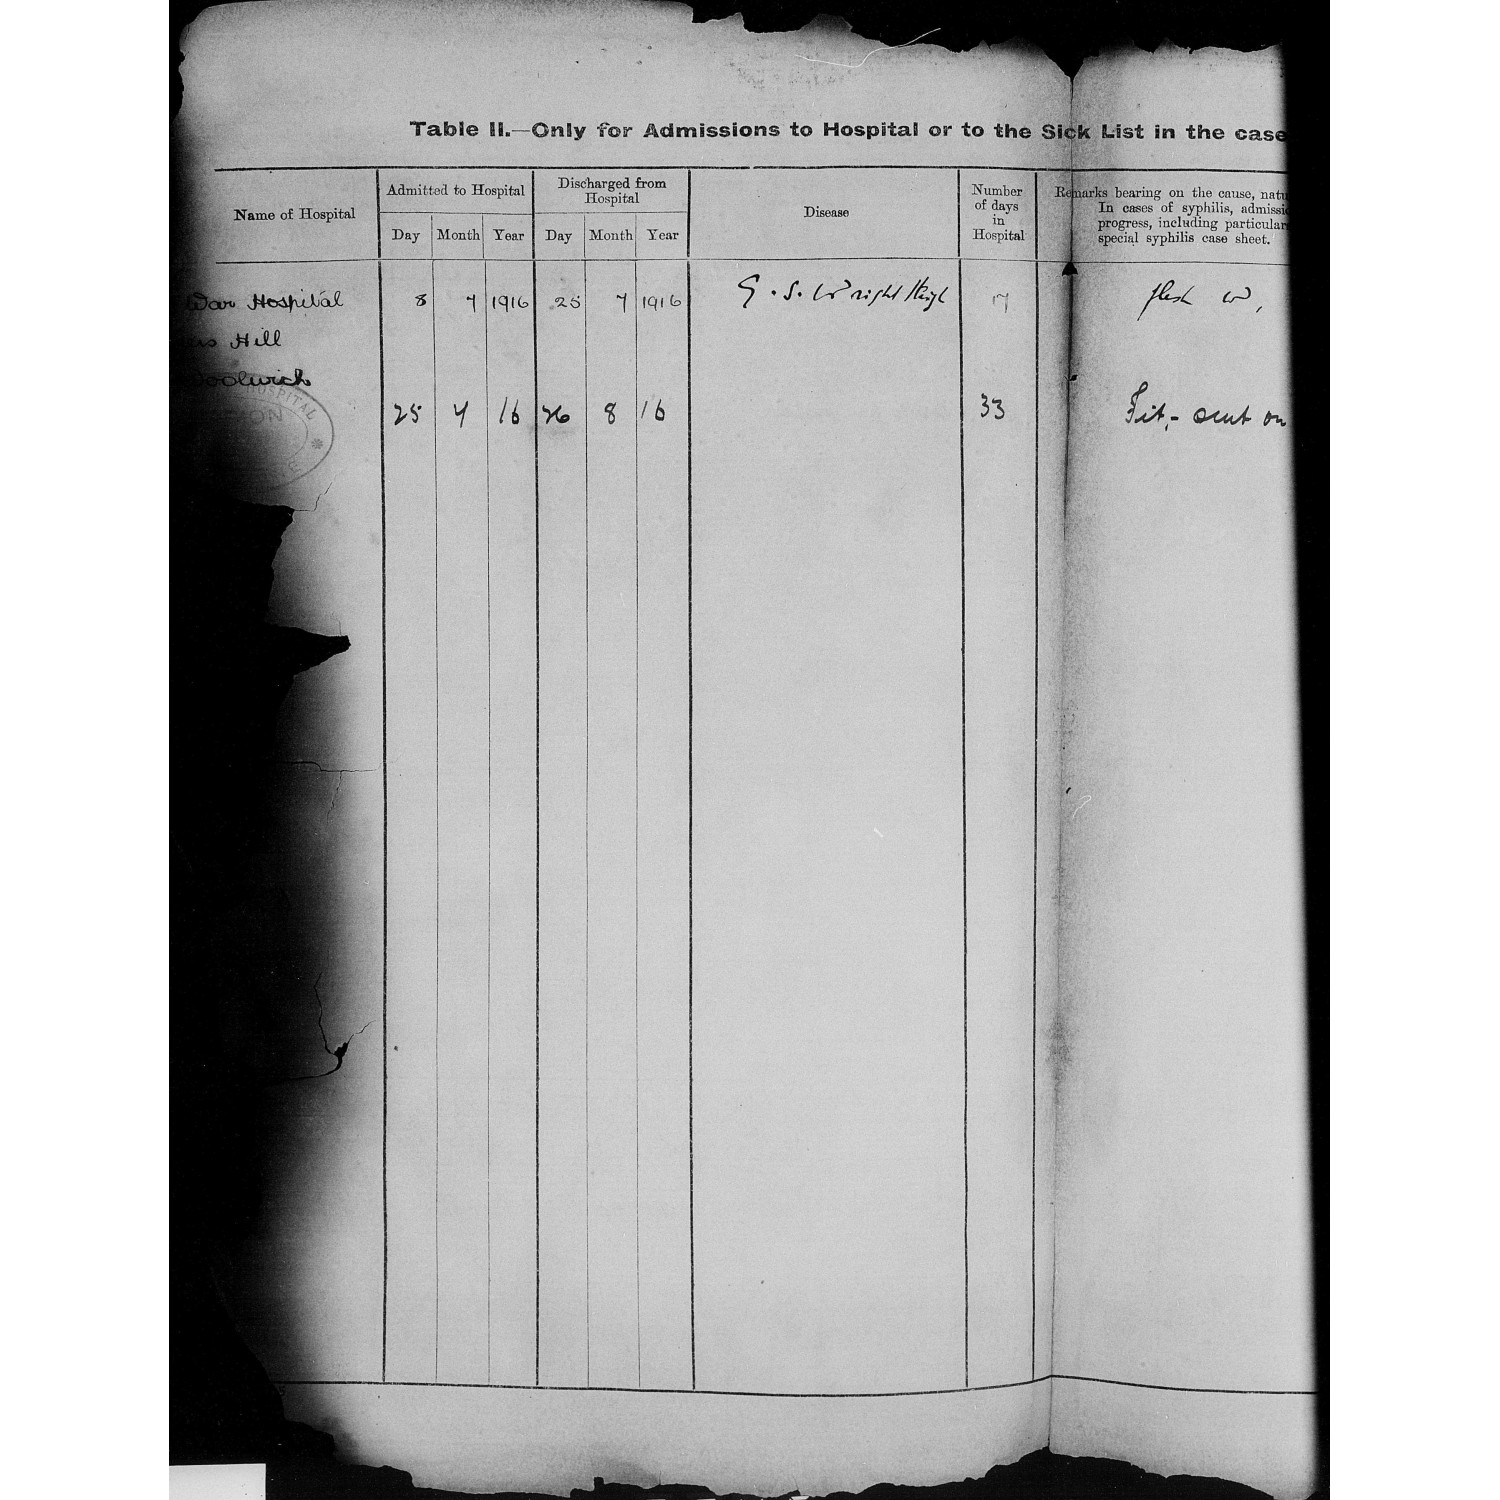 Table II.—Only for Admissions to Hospital or to the Sick List in the case
Name of Hospital
Admitted to Hospital
Day Month Year
Discharged from
Hospital
Day Month Year
Disease
Number
of days
in
Hospital
Remarks bearing on the cause, natu
In cases of syphilis, admissi
progress, including particular
special syphilis case sheet.
War Hospital 8 7 1916 25 7 1916 G.S.W right thigh 17 flesh w,
Hill
Woolwich
HOSPITAL
25 7 16 26 8 16 33 Fit,- sent on